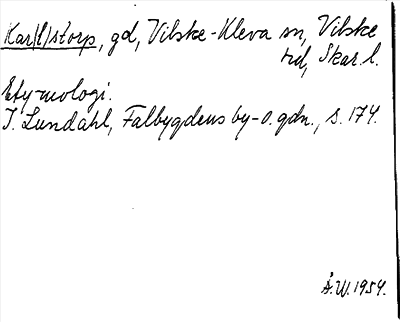 Kar(l)storp, gd, Vilske-Kleva sn, Vilske
hd, Skar.l.
Etymologi.
I. Lundahl, Falbygdens by-o.gdn., s. 174.
Å.W. 1954.